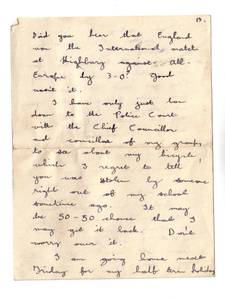 13.
Did you hear that England
won the International match
at Highbury against All-
Europe by 3-0? Good
wasn't it.
I have only just been
down to the Police Court
with the Chief Councillor
and councillor of my group,
to see about my bicycle,
which I regret to tell
you was stolen by someone
right out of my school
sometime ago. It may
be 50-50 chance that I
may get it back. Don't
worry over it.
I am going home next
Friday for my half term holiday